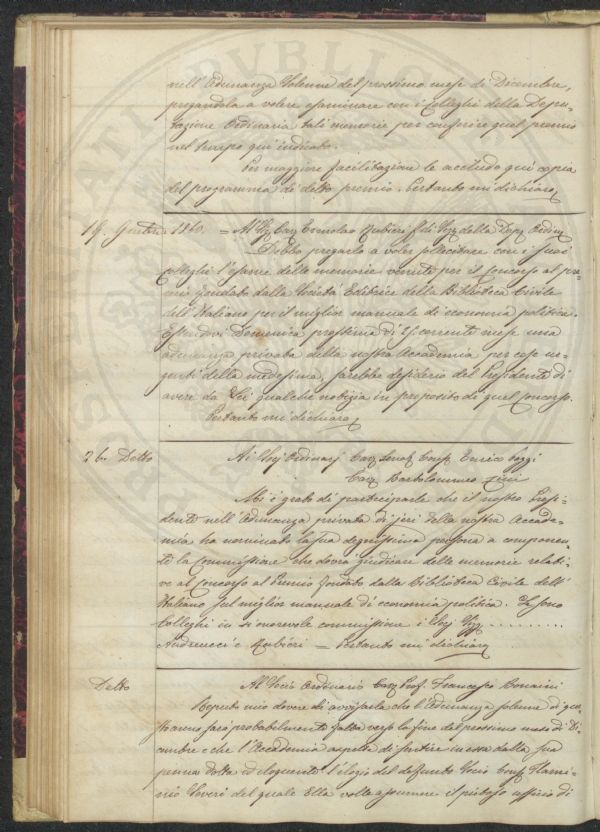 nell'Adunanza Solenne del prossimo mese di Dicembre,
pregandola a volere esaminare con i Colleghi della Depu-
tazione Ordinaria tali memorie per conferire quel premio
nel tempo qui indicato.
Per maggiore facilitazione le accludo qui copia
del programma di detto premio. Pertanto mi dichiaro
19. 1860. = Cav Ermolao Rubieri f. di della Dep. Ordin
Debbo pregarla a voler sollecitare con i suoi
colleghi l'esame delle memorie venute per il Concorso al pre-
mio fondato dalla Società Editrice della Biblioteca Civile
dell'Italiano per il miglior manuale di economia politica.
Essendovi Domenica prossima di 25 corrente mese una
adunanza privata della nostra Accademia per cose ur-
genti della medesima, sarebbe desiderio del Presidente di
avere da Lei qualche notizia in proposito di quel Concorso.
Pertanto mi dichiaro
26. Detto Ai Ordinarj Cav Enrico Poggi
Cav Bartolommeo Cini
Mi è grato di parteciparle che il nostro Presi-
dente nell'Adunanza privata di jeri della nostra Accade-
mia ha nominata la sua degnissima persona a componen-
te la Commissione che dovrà giudicare delle memorie relati-
ve al Concorso al Premio fondato dalla Biblioteca Civile dell'
Italiano sul miglior manuale di economia politica. Le sono
Colleghi in sì onorevole commissione i
Andreucci e Rubieri = Pertanto mi dichiaro
Detto Al Socio Ordinario Cav Prof. Francesco Bonaini
Reputo mio dovere di avvisarla che l'Adunanza solenne di que-
st'anno sarà probabilmente fatta verso la fine del prossimo mese di Di-
cembre e che l'Accademia aspetta di sentire in essa dalla sua
penna dotta ed eloquente l'elogio del defunto Socio Flami-
nio Severi del quale Ella volle assumere il pietoso ufficio di